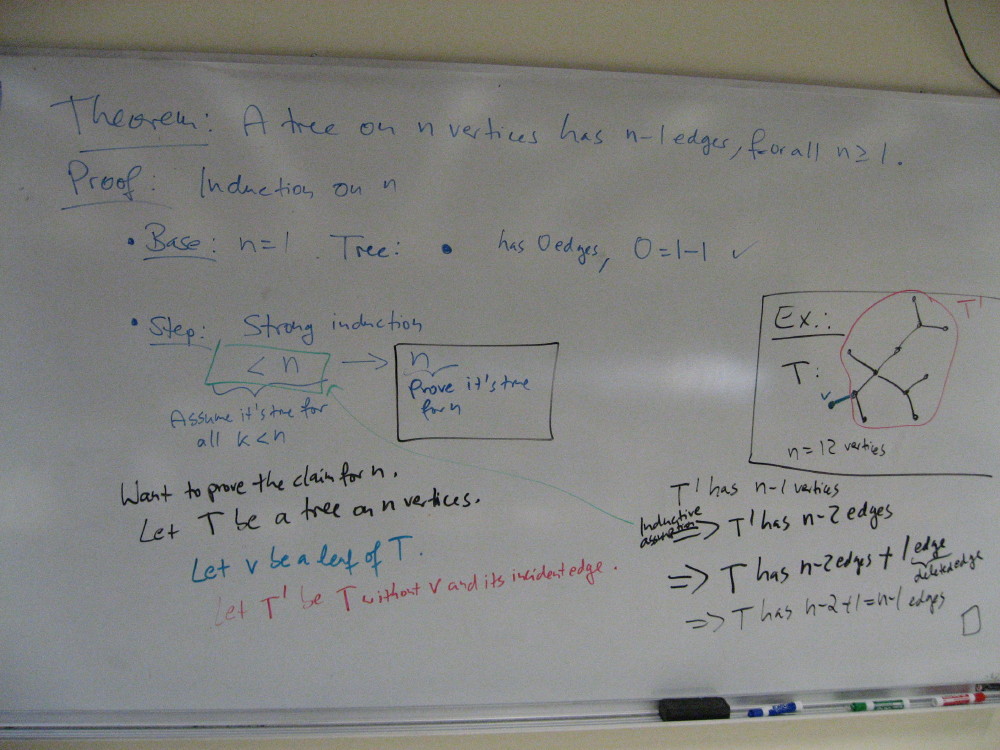 Theorem: A tree on n vertices has n-1 edges, for all n ≥ 1.
Proof: Induction on n
• Base: n=1. Tree: • has 0 edges, 0=1-1 ✓
• Step: Strong induction
< n → n
Assume it's true for
all k<n
Prove it's true
for n
Ex.:
T'
T:
v
n=12 vertices
Want to prove the claim for n.
Let T be a tree on n vertices.
Let v be a leaf of T.
Let T' be T without v and its incident edge.
T' has n-1 vertices
Inductive
assumption
=> T' has n-2 edges
=> T has n-2 edges + 1 edge
deleted edge
=> T has n-2+1=n-1 edges
□